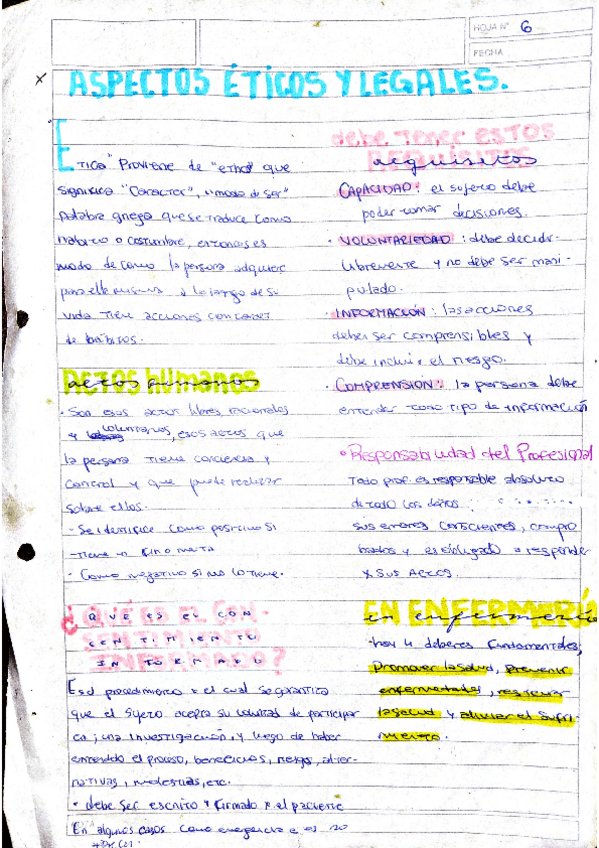 HOJA Nº 6
FECHA
ASPECTOS ÉTICOS Y LEGALES.
ETICA" Proviene de "ethos" que
significa "Caracter", "modo de ser"
palabra griega que se traduce como
habito o costumbre, entonces es
modo de como la persona adquiere
para ella misma a lo largo de su
vida tiene acciones con caracter
de habitos.
actos humanos
- Son esos actos libres racionales
y voluntarios, esos actos que
la persona tiene conciencia y
control y que puede realizar
sobre ellos.
- Se identifica como positivo si
- tiene un fin o meta
- Como negativo si no lo tiene.
¿QUÉ ES EL CON-
SENTIMIENTO
INFORMADO?
Es el procedimiento x el cual se garantiza
que el sujeto acepta su voluntad de participar
en una investigación, y luego de haber
entendido el proceso, beneficios, riesgos, alter-
nativas, molestias, etc.
• debe ser escrito y firmado x el paciente
En algunos casos como emergencia e es no
debe tener estos
requisitos
CAPACIDAD: el sujeto debe
poder tomar decisiones.
• VOLUNTARIEDAD: debe decidir
libremente y no debe ser mani-
pulado.
• INFORMACIÓN: las acciones
deben ser comprensibles y
debe incluir el riesgo.
• COMPRENSIÓN: la persona debe
entender todo tipo de información
• Responsabilidad del Profesional
Todo prof. es responsable absoluto
de todo los daños,
sus errores conscientes, compro
bados y es obligado a responder
x sus actos.
EN ENFERMERÍA
en enfermería
- hay 4 deberes fundamentales,
promover la salud, prevenir
enfermedades, restaurar
la salud y aliviar el sufri-
miento.